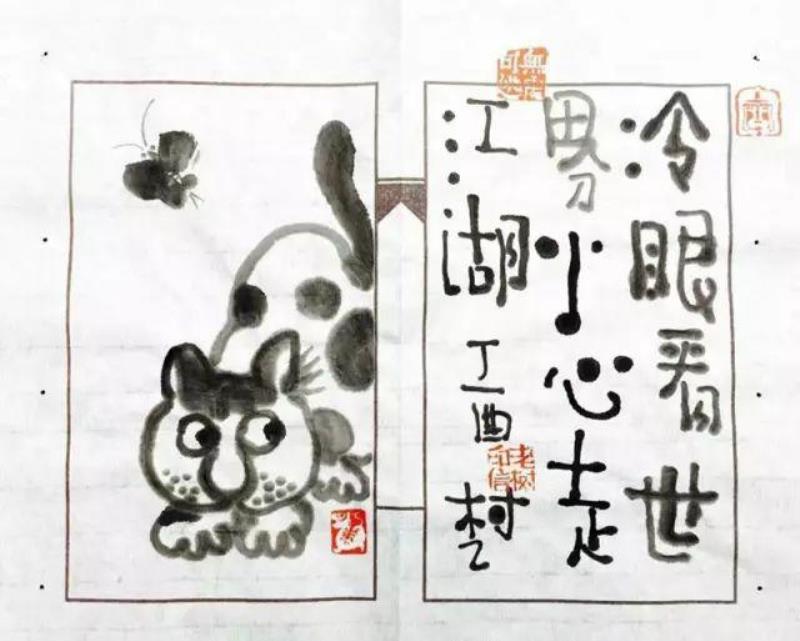 冷眼看世
界小心走
江湖 丁酉
老树
印信